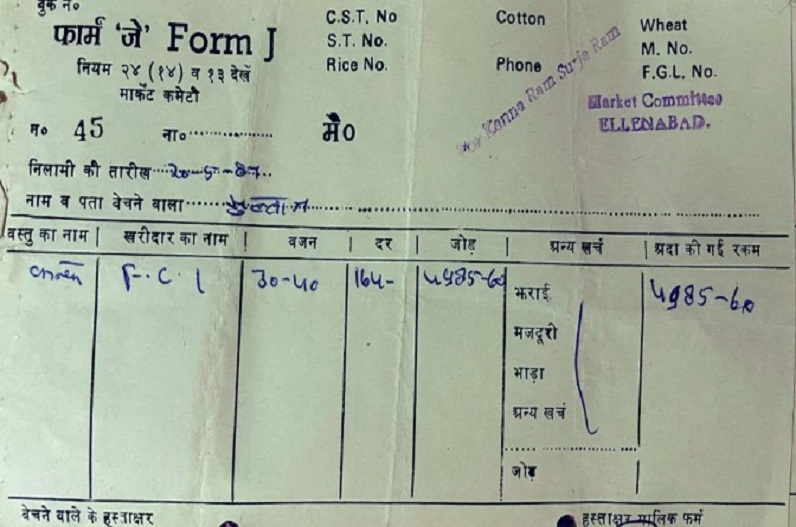 बुक न०
फार्म 'जे' Form J
नियम २४ (१४) व १३ देखें
मार्केट कमेटी
C.S.T. No
S.T. No.
Rice No.
Cotton
Phone
Wheat
M. No.
F.G.L. No.
For Kanna Ram Surja Ram
Market Committee
ELLENABAD.
न० 45 ना०.................. मै०
निलामी की तारीख 20-5-87
नाम व पता बेचने वाला
वस्तु का नाम | खरीदार का नाम | वजन | दर | जोड़ | अन्य खर्च | अदा की गई रकम
F.C.I 30-40 164- 4985-60 भराई 4985-60
मजदूरी
भाड़ा
अन्य खर्च
जोड़
बेचने वाले के हस्ताक्षर हस्ताक्षर मालिक फर्म